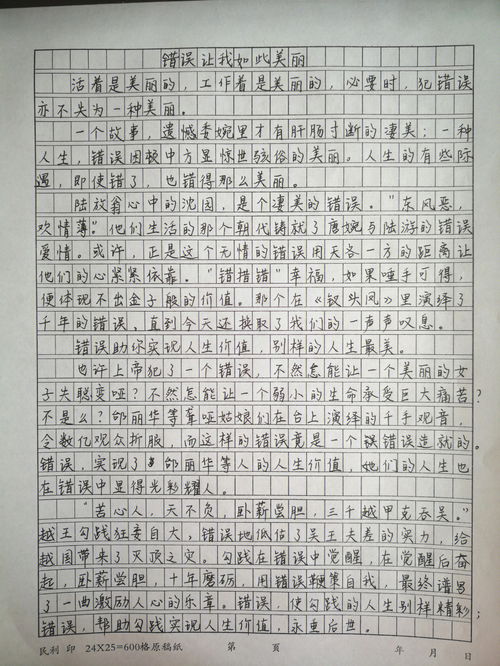 错误让我如此美丽
活着是美丽的，工作着是美丽的，必要时，犯错误
亦不失为一种美丽。
一个故事，遗憾委婉里才有肝肠寸断的凄美；一种
人生，错误困顿中方显惊世骇俗的美丽。人生的有些际
遇，即使错了，也错得那么美丽。
陆放翁心中的沈园，是个凄美的错误。"东风恶，
欢情薄"他们生活的那个朝代铸就了唐婉与陆游的错误
爱情。或许，正是这个无情的错误用天各一方的距离让
他们的心紧紧依靠。"错措错"幸福，如果唾手可得，
便体现不出金子般的价值。那个在《钗头凤》里演绎了
千年的错误，直到今天还换取了我们的一声声叹息。
错误助你实现人生价值，别样的人生最美。
也许上帝犯了一个错误，不然怎能让一个美丽的女
子失聪变哑？不然怎能让一个弱小的生命承受巨大痛苦？
不是么？邰丽华等聋哑姑娘们在台上演绎的千手观音，
令数亿观众折服，而这样的错误竟是一个错误造就的。
错误，实现了邰丽华等人的人生价值，她们的人生也
在错误中显得光彩耀人。
"苦心人，天不负，卧薪尝胆，三千越甲克吞吴。"
越王勾践狂妄自大，错误地低估了吴王夫差的实力，给
越国带来了灭顶之灾。勾践在错误中觉醒，在觉醒后奋
起，卧薪尝胆，十年磨砺，用错误鞭策自我，最终谱写
了一曲激励人心的乐章。错误，使勾践的人生别样精彩；
错误，帮助勾践实现人生价值，永垂后世。
民利 印 24X25=600格原稿纸 第 頁 年 月 日